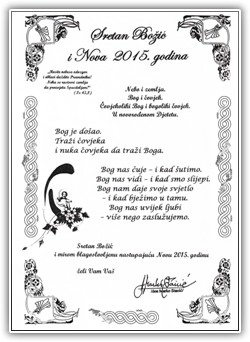 Sretan Božić
i Nova 2015. godina
"Neka nebesa odozgor
i oblaci daždе Pravednika!
Neka se rastvori zemlja
da procvjeta Spasitelj!"
(Iz 45,8)
Nebo i zemlja.
Bog i čovjek.
Čovjekoliki Bog i bogoliki čovjek.
U novorođenom Djetetu.
Bog je došao.
Traži čovjeka
i nuka čovjeka da traži Boga.
Bog nas čuje – i kad šutimo.
Bog nas vidi – i kad smo slijepi.
Bog nam daje svoje svjetlo
– i kad bježimo u tamu.
Bog nas uvijek ljubi
– više nego zaslužujemo.
Sretan Božić
i mirom blagoslovljenu nastupajuću Novu 2015. godinu
želi Vam Vaš